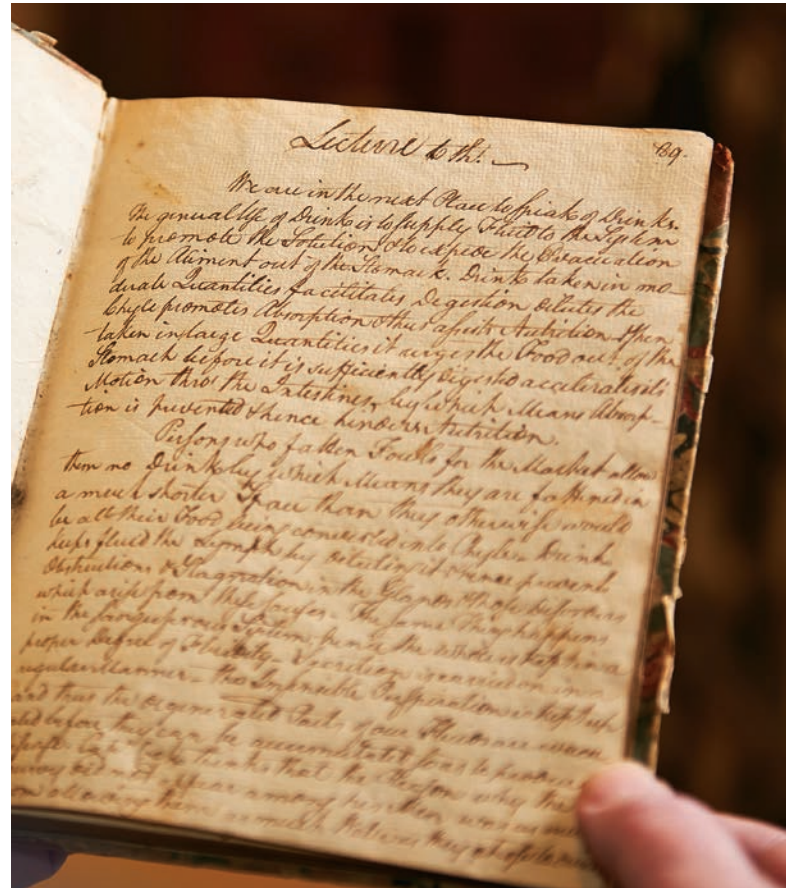 Lecture 10th. 89.
We are in the next Place to speak of Drinks.
The general Use of Drink is to supply Fluid to the System
to promote the Solution & to expede the Evacuation
of the Aliment out of the Stomach. Drink taken in mo-
derate Quantities facilitates Digestion dilutes the
Chyle promotes Absorption & thus assists Nutrition. When
taken in large Quantities it urges the Food out of the
Stomach before it is sufficiently digested accelerates its
Motion thro' the Intestines, by which Means Absorp-
tion is prevented & hence hinders Nutrition.
Persons who fatten Fowls for the Market allow
them no Drink by which Means they are fattened in
a much shorter Space than they otherwise would
be all their Food being converted into Chyle. Drink
keeps fluid the Lymph by diluting it & hence prevents
Obstructions & Stagnation in the Glands & those
which arise from these Causes. The same Thing happens
in the System, hence the whole is kept in a
proper Degree of Fluidity. Secretion is carried on in a
regular Manner. The Insensible Perspiration is kept up
and thus the degenerated Parts of our Fluids are
before they can be accumulated so as to produce
Cook thinks that the Reason why the
did not appear among his Men was
allowing them as much Water as they